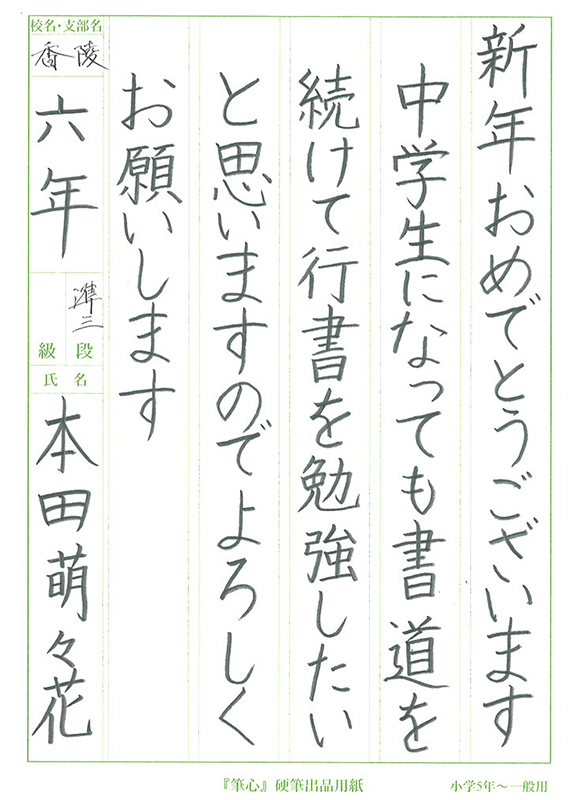 新年おめでとうございます
中学生になっても書道を
続けて行書を勉強したい
と思いますのでよろしく
お願いします
校名・支部名
香陵
六年
準三
級 段
氏 名
本田萌々花
『筆心』硬筆出品用紙
小学5年〜一般用